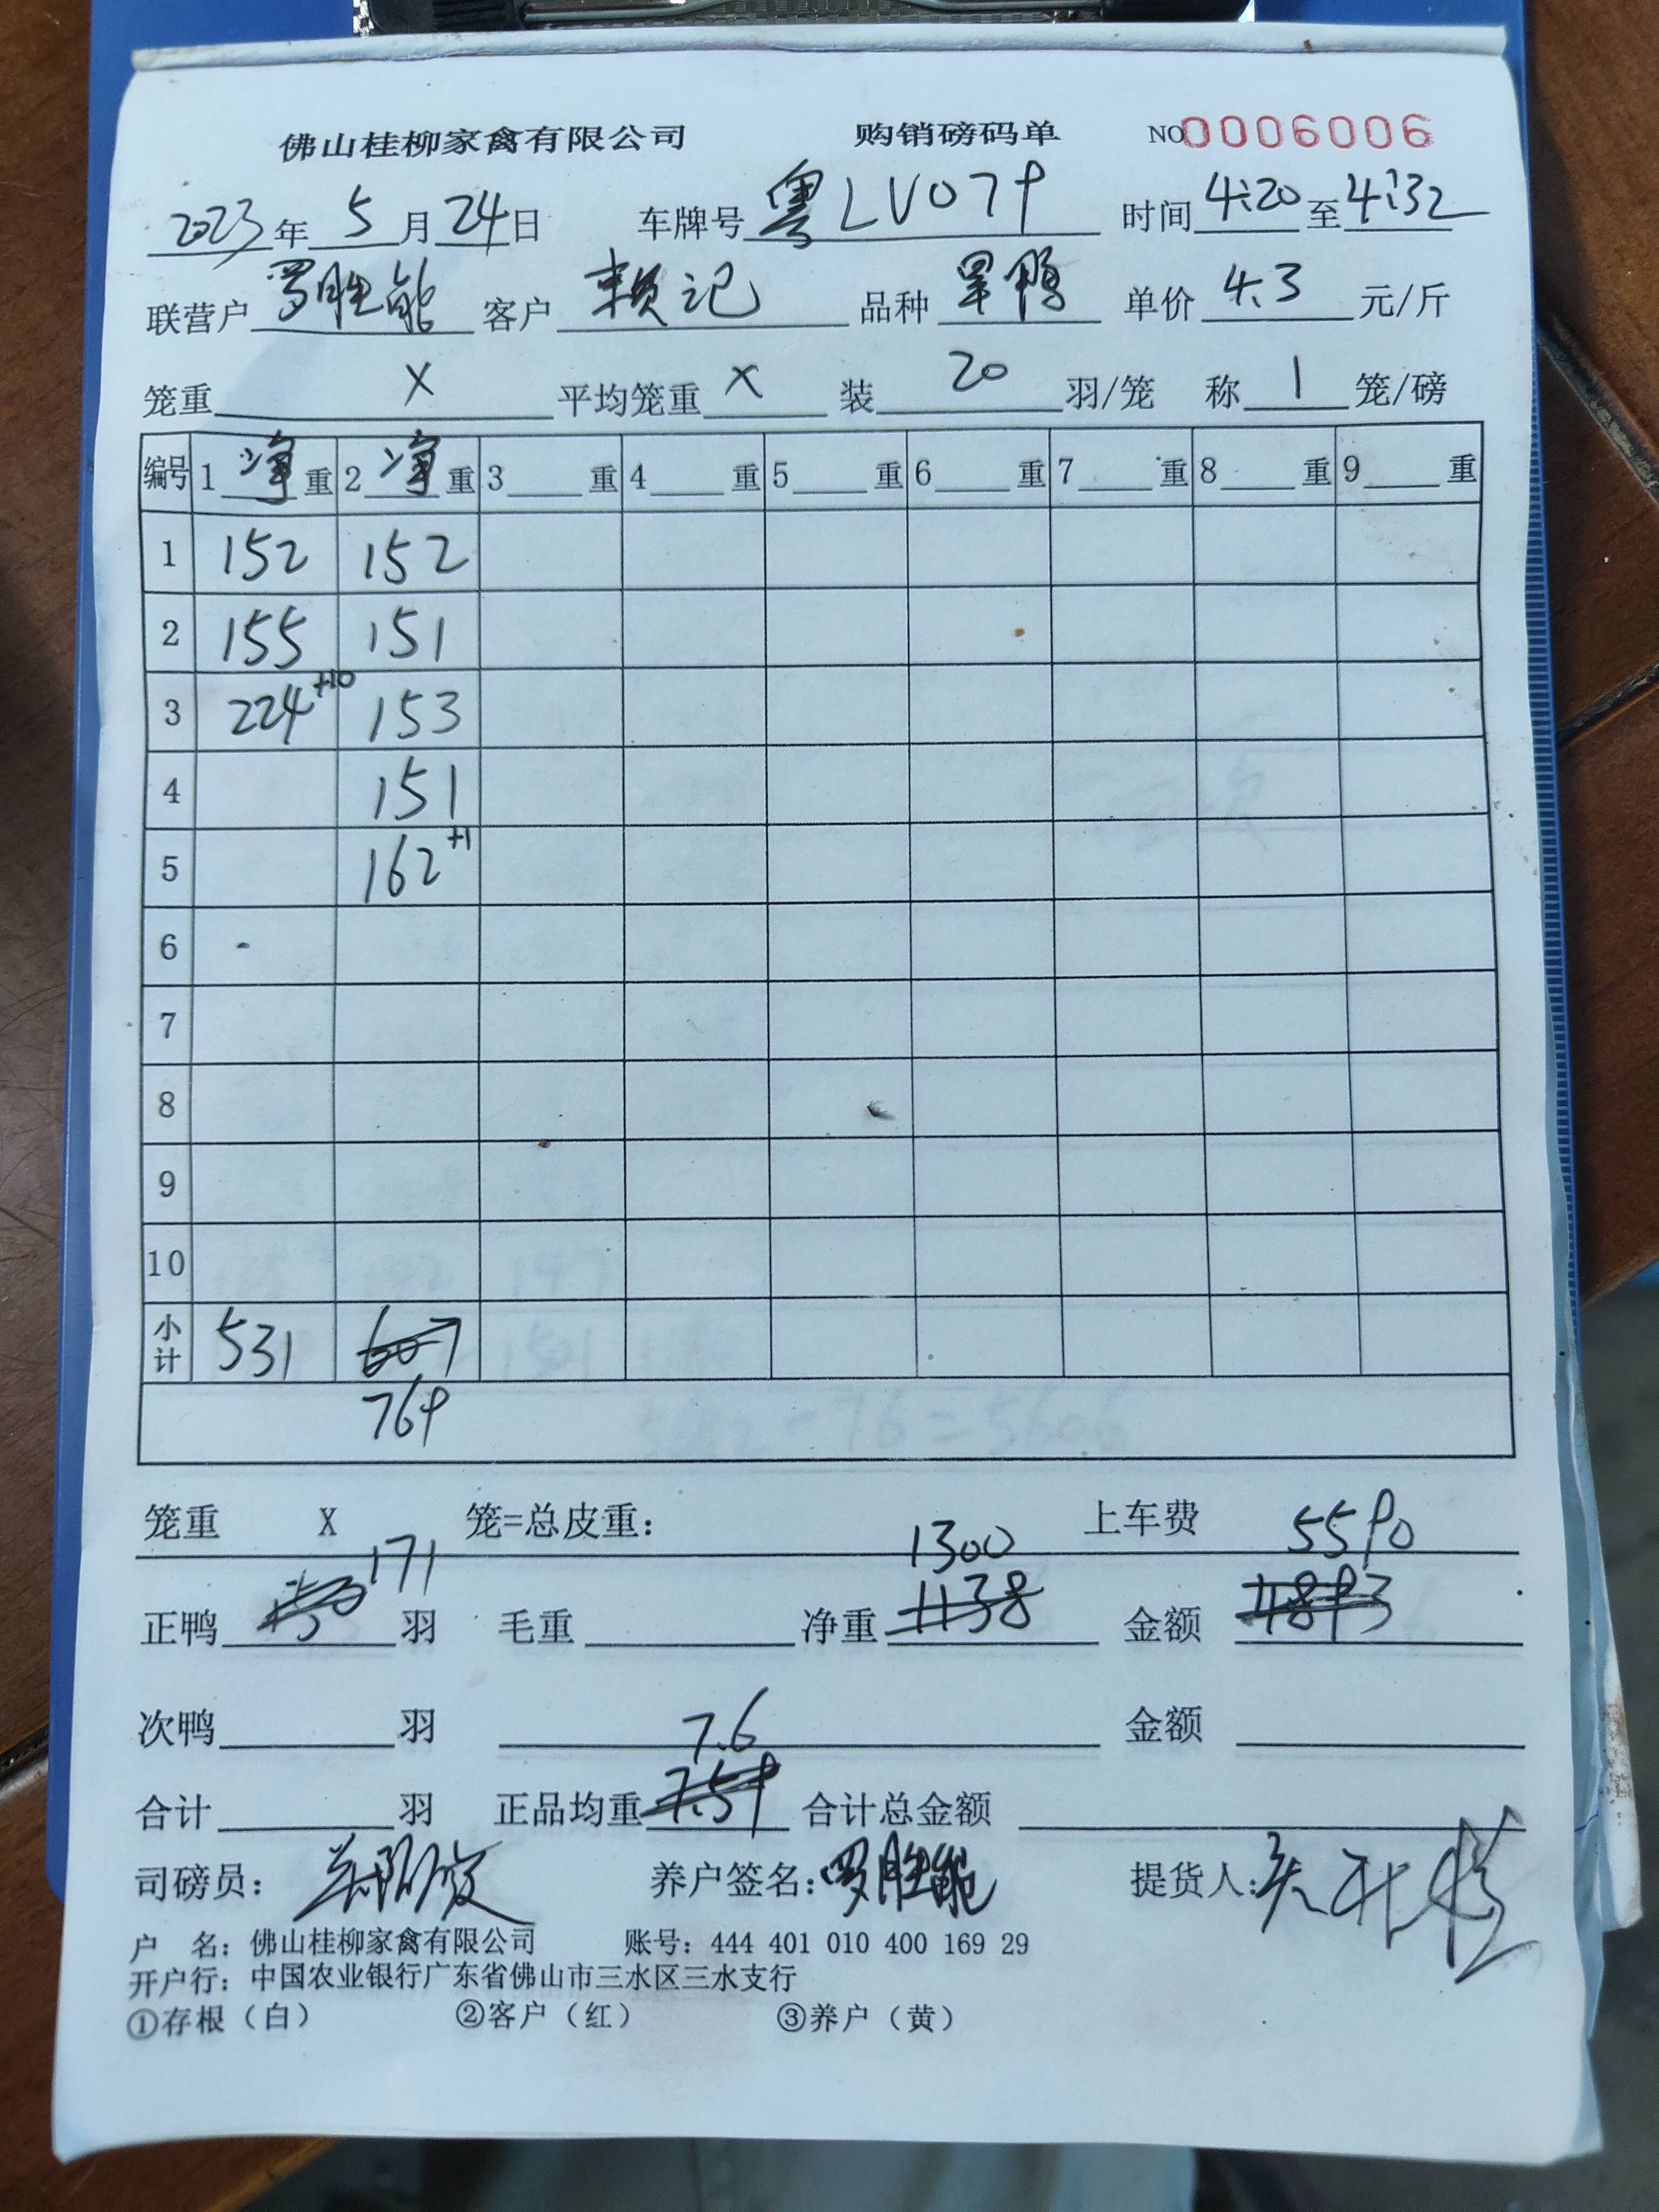 佛山桂柳家禽有限公司 购销磅码单 NO0006006
2023年5月24日 车牌号粤LV079 时间4:20至4:32
联营户罗胜能 客户赖记 品种旱鸭 单价4.3元/斤
笼重X 平均笼重X 装20羽/笼 称1笼/磅
编号 1净重 2净重 3重 4重 5重 6重 7重 8重 9重
1 152 152
2 155 151
3 224+10 153
4 151
5 162+1
6
7
8
9
10
小计 531 607
769
笼重 X 笼=总皮重: 上车费
171 1300 5590
正鸭153羽 毛重 净重1138 金额4893
次鸭 羽 金额
7.6
合计 羽 正品均重7.59 合计总金额
司磅员: 养户签名:罗胜能 提货人:
户 名: 佛山桂柳家禽有限公司 账号: 444 401 010 400 169 29
开户行: 中国农业银行广东省佛山市三水区三水支行
①存根(白) ②客户(红) ③养户(黄)